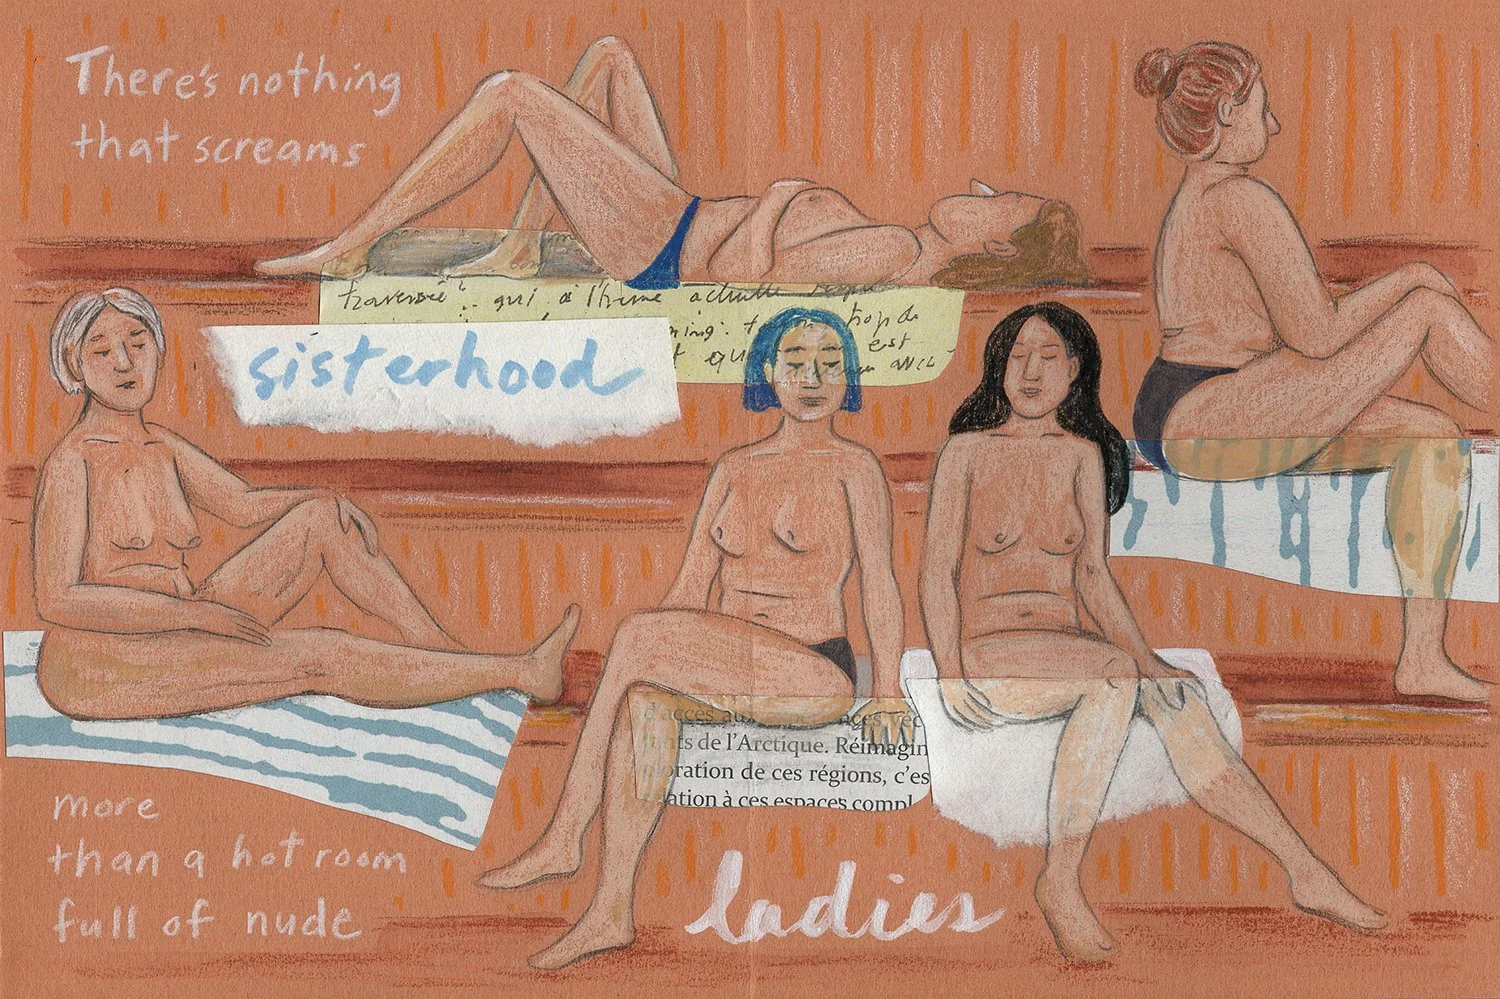 There's nothing
that screams
traversée? qui à l'heure actuelle
ning. t hop de
t qu est
sisterhood
d'accès aux
nts de l'Arctique. Réimagin
oration de ces régions, c'es
ation à ces espaces compl
more
than a hot room
full of nude
ladies